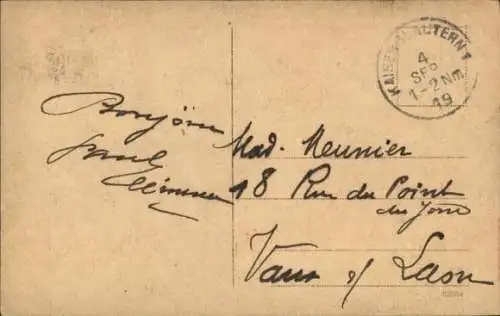 KAISERSLAUTERN 1
4
SEP
1-2 Nm
19
Bonjour
Mad. Meunier
18 Rue du Point
du Jour
Vaux s/ Laon